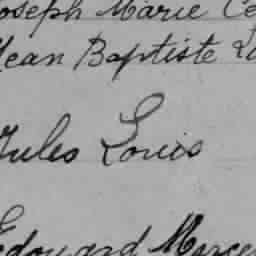 Joseph Marie
Jean Baptiste
Jules Louis
Edouard Marce